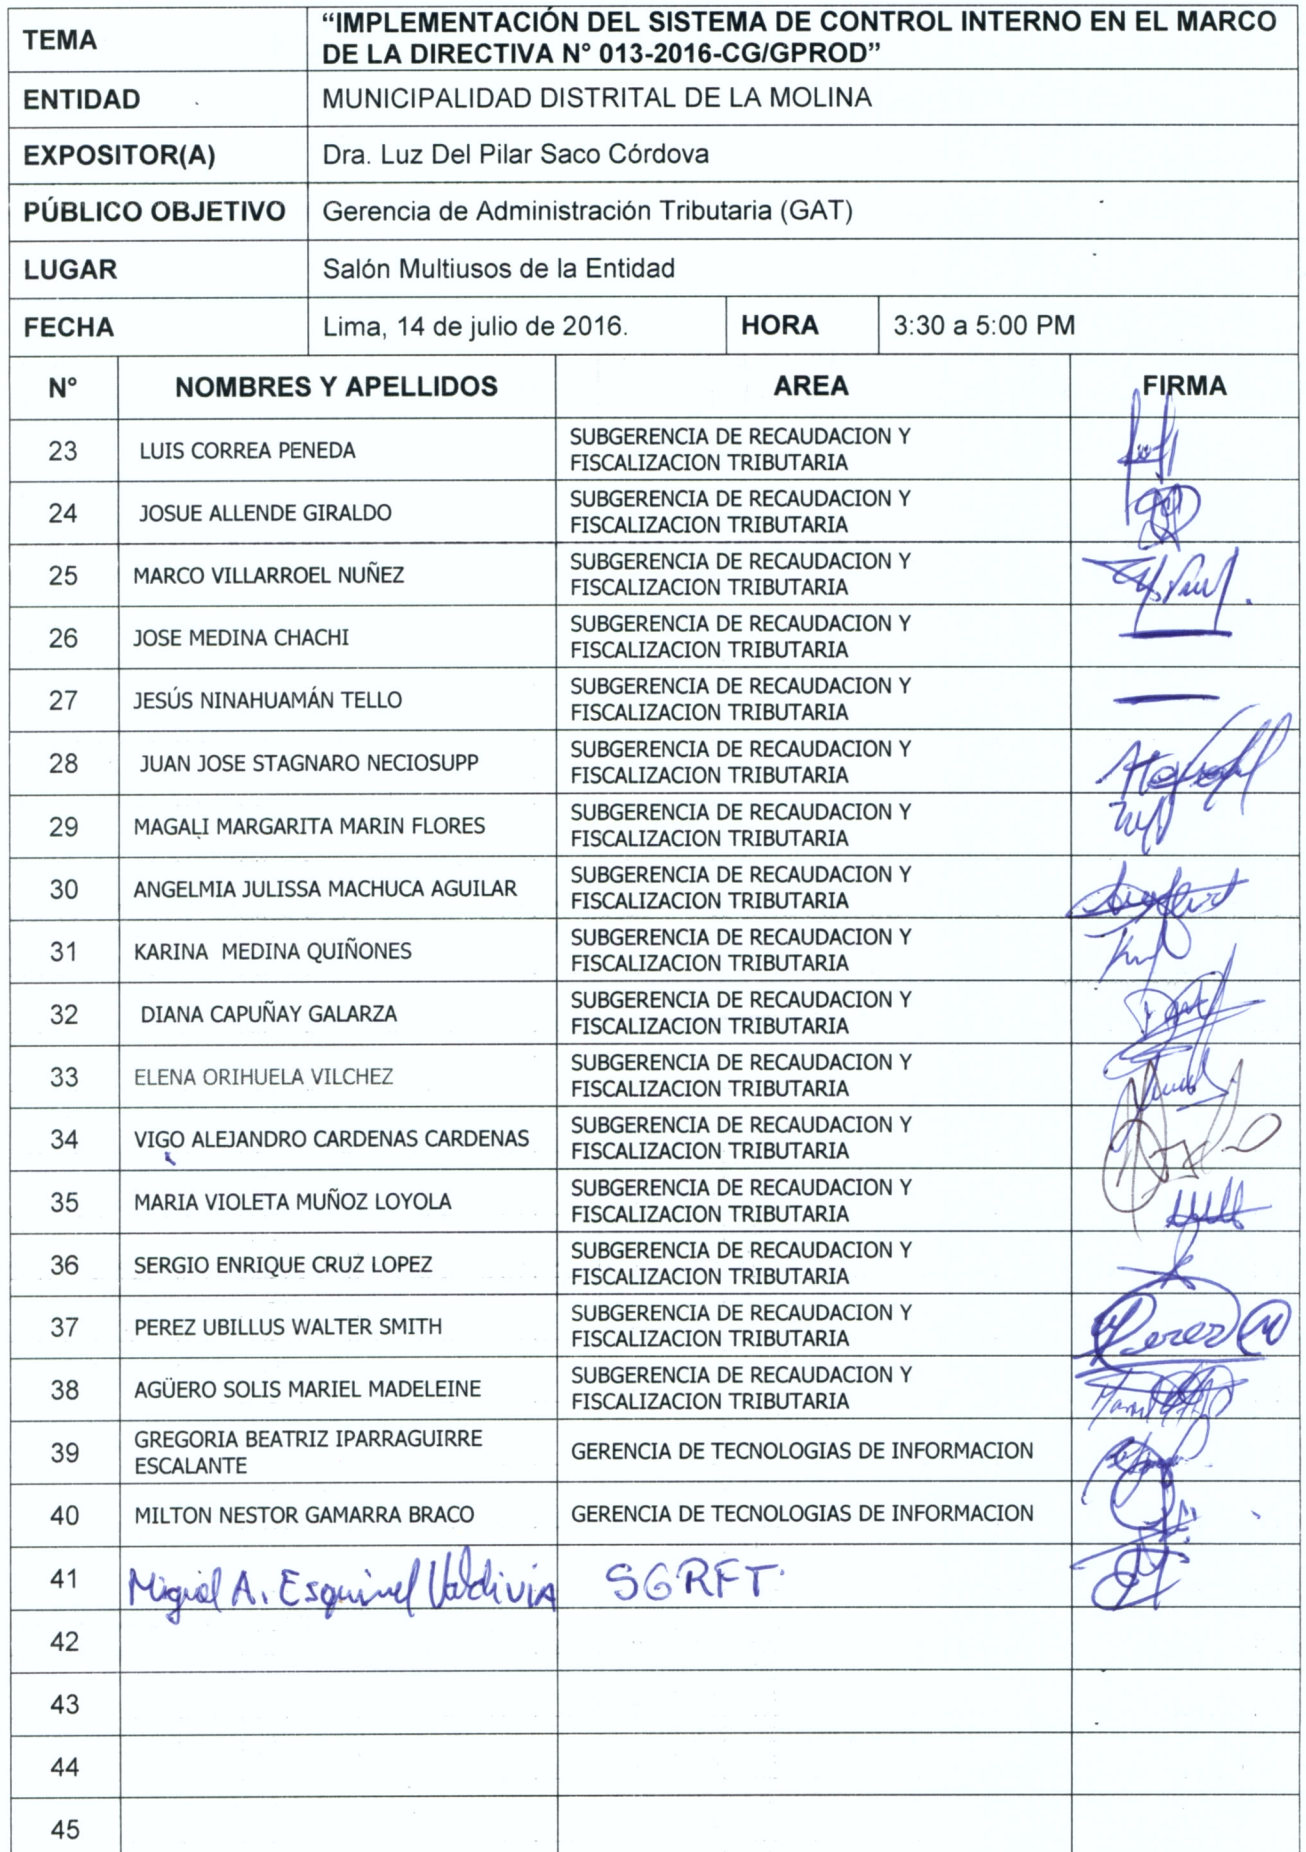 TEMA
“IMPLEMENTACIÓN DEL SISTEMA DE CONTROL INTERNO EN EL MARCO
DE LA DIRECTIVA N° 013-2016-CG/GPROD”
ENTIDAD
MUNICIPALIDAD DISTRITAL DE LA MOLINA
EXPOSITOR(A)
Dra. Luz Del Pilar Saco Córdova
PÚBLICO OBJETIVO
Gerencia de Administración Tributaria (GAT)
LUGAR
Salón Multiusos de la Entidad
FECHA
Lima, 14 de julio de 2016.
HORA
3:30 a 5:00 PM
N°
NOMBRES Y APELLIDOS
AREA
FIRMA
23
LUIS CORREA PENEDA
SUBGERENCIA DE RECAUDACION Y
FISCALIZACION TRIBUTARIA
24
JOSUE ALLENDE GIRALDO
SUBGERENCIA DE RECAUDACION Y
FISCALIZACION TRIBUTARIA
25
MARCO VILLARROEL NUÑEZ
SUBGERENCIA DE RECAUDACION Y
FISCALIZACION TRIBUTARIA
26
JOSE MEDINA CHACHI
SUBGERENCIA DE RECAUDACION Y
FISCALIZACION TRIBUTARIA
27
JESÚS NINAHUAMÁN TELLO
SUBGERENCIA DE RECAUDACION Y
FISCALIZACION TRIBUTARIA
28
JUAN JOSE STAGNARO NECIOSUPP
SUBGERENCIA DE RECAUDACION Y
FISCALIZACION TRIBUTARIA
29
MAGALI MARGARITA MARIN FLORES
SUBGERENCIA DE RECAUDACION Y
FISCALIZACION TRIBUTARIA
30
ANGELMIA JULISSA MACHUCA AGUILAR
SUBGERENCIA DE RECAUDACION Y
FISCALIZACION TRIBUTARIA
31
KARINA MEDINA QUIÑONES
SUBGERENCIA DE RECAUDACION Y
FISCALIZACION TRIBUTARIA
32
DIANA CAPUÑAY GALARZA
SUBGERENCIA DE RECAUDACION Y
FISCALIZACION TRIBUTARIA
33
ELENA ORIHUELA VILCHEZ
SUBGERENCIA DE RECAUDACION Y
FISCALIZACION TRIBUTARIA
34
VIGO ALEJANDRO CARDENAS CARDENAS
SUBGERENCIA DE RECAUDACION Y
FISCALIZACION TRIBUTARIA
35
MARIA VIOLETA MUÑOZ LOYOLA
SUBGERENCIA DE RECAUDACION Y
FISCALIZACION TRIBUTARIA
36
SERGIO ENRIQUE CRUZ LOPEZ
SUBGERENCIA DE RECAUDACION Y
FISCALIZACION TRIBUTARIA
37
PEREZ UBILLUS WALTER SMITH
SUBGERENCIA DE RECAUDACION Y
FISCALIZACION TRIBUTARIA
Perez
38
AGÜERO SOLIS MARIEL MADELEINE
SUBGERENCIA DE RECAUDACION Y
FISCALIZACION TRIBUTARIA
39
GREGORIA BEATRIZ IPARRAGUIRRE
ESCALANTE
GERENCIA DE TECNOLOGIAS DE INFORMACION
40
MILTON NESTOR GAMARRA BRACO
GERENCIA DE TECNOLOGIAS DE INFORMACION
41
Miguel A. Esquivel Valdivia
SGRFT.
42
43
44
45